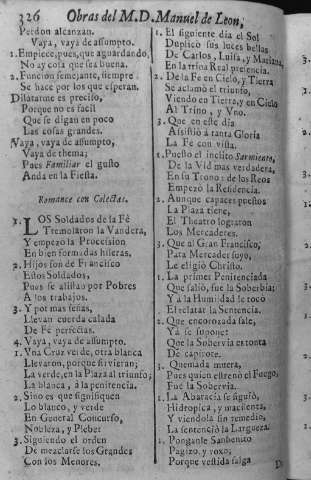 326 Obras del M. D. Manuel de Leon,
Perdon alcanzan.
Vaya, vaya de assumpto.
1. Empiece, pues, que aguardando,
No ay cosa que sea buena.
2. Funcion semejante, siempre
Se hace por los que esperan.
Dilatarme es preciso,
Porque no es facil
Que se digan en poco
Las cosas grandes.
Vaya, vaya de assumpto,
Vaya de thema,
Pues Familiar el gusto
Anda en la Fiesta.
Romance con Colectas.
1. LOs Soldados de la Fé
Tremolaron la Vandera,
Y empezò la Procession
En bien formadas hileras.
2. Hijos son de Francisco
Estos Soldados,
Pues se alistan por Pobres
A los trabajos.
3. Y por mas señas,
Llevan cuerda calada
De Fé perfectas.
4. Vaya, vaya de assumpto.
1. Vna Cruz verde, otra blanca
Llevaron, porque sirvieran;
La verde, en la Plaza al triunfo;
La blanca, à la penitencia.
2. Sino es que signifiquen
Lo blanco, y verde
En General Concurso,
Nobleza, y Plebe.
3. Siguiendo el orden
De mezclarse los Grandes
Con los Menores.
1. El siguiente dia el Sol
Duplicó sus luces bellas
De Carlos, Luisa, y Mariana,
En la trina Real presencia.
2. De la Fé en Cielo, y Tierra
Se aclamò el triumfo,
Viendo en Tierra, y en Cielo
Al Trino, y Vno.
3. Que en este dia
Assistiò à tanta Gloria
La Fé con vista.
1. Puesto el inclito Sarmiento,
De la Vid mas verdadera,
En su Trono: de los Reos
Empezò la Residencia.
2. Aunque capaces puestos
La Plaza tiene,
El Theatro lograron
Los Mercaderes.
3. Que al Gran Francisco,
Para Mercader suyo,
Le eligiò Christo.
1. La primer Penitenciada
Que saliò, fue la Soberbia;
Y à la Humildad le tocò
El relatar la Sentencia.
2. Que encorozada sale,
Yà se supone;
Que la Sobervia es tonta
De capirote.
3. Quemada muera,
Pues quien estrenò el Fuego,
Fue la Sobervia.
1. La Abaricia se siguiò,
Hidropica, y macilenta,
Y viendola sin remedio,
La sentenciò la Largueza.
1. Ponganle Sanbenito
Pagizo, y roxo,
Porque vestida salga